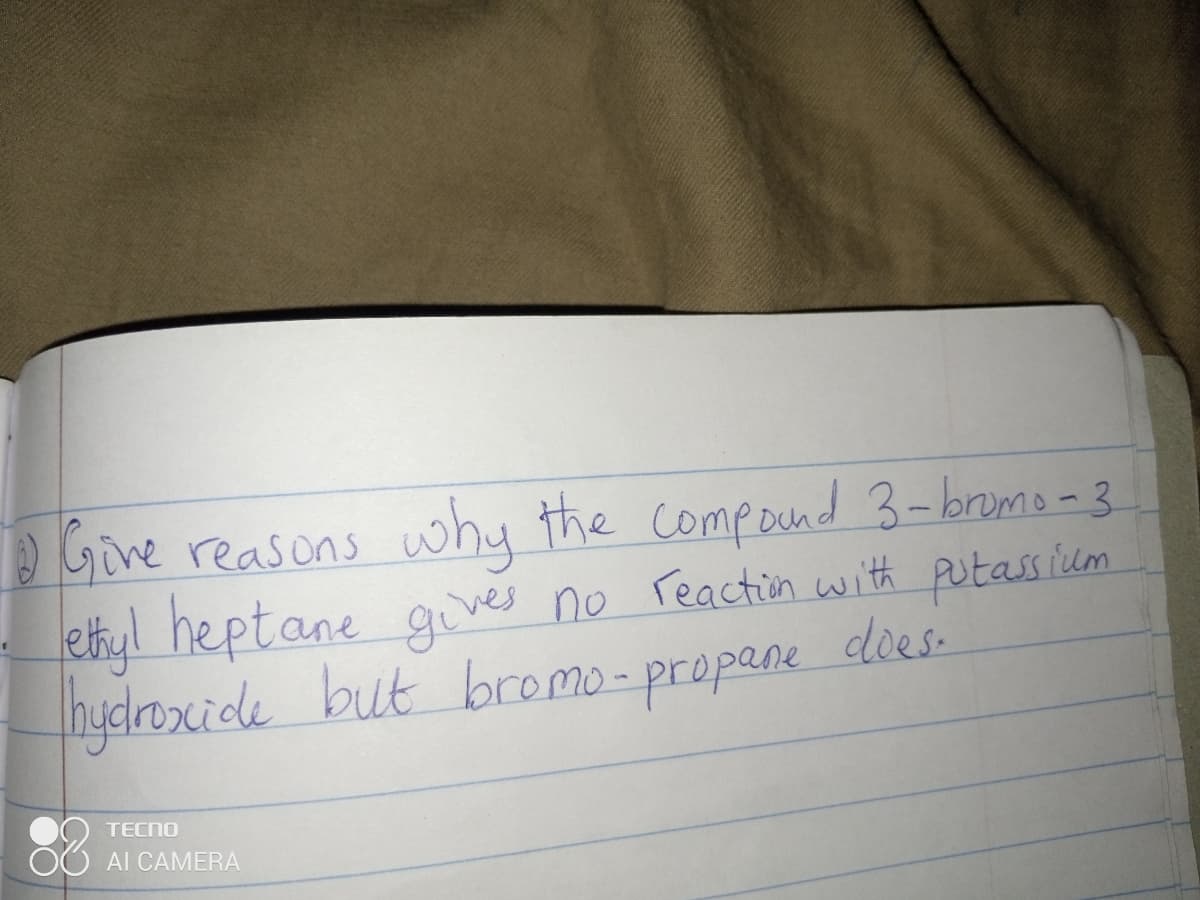 2) Give reasons why the compound 3-bromo-3
ethyl heptane gives no reaction with potassium
hydroxide but bromo-propane does.
TECNO
AI CAMERA